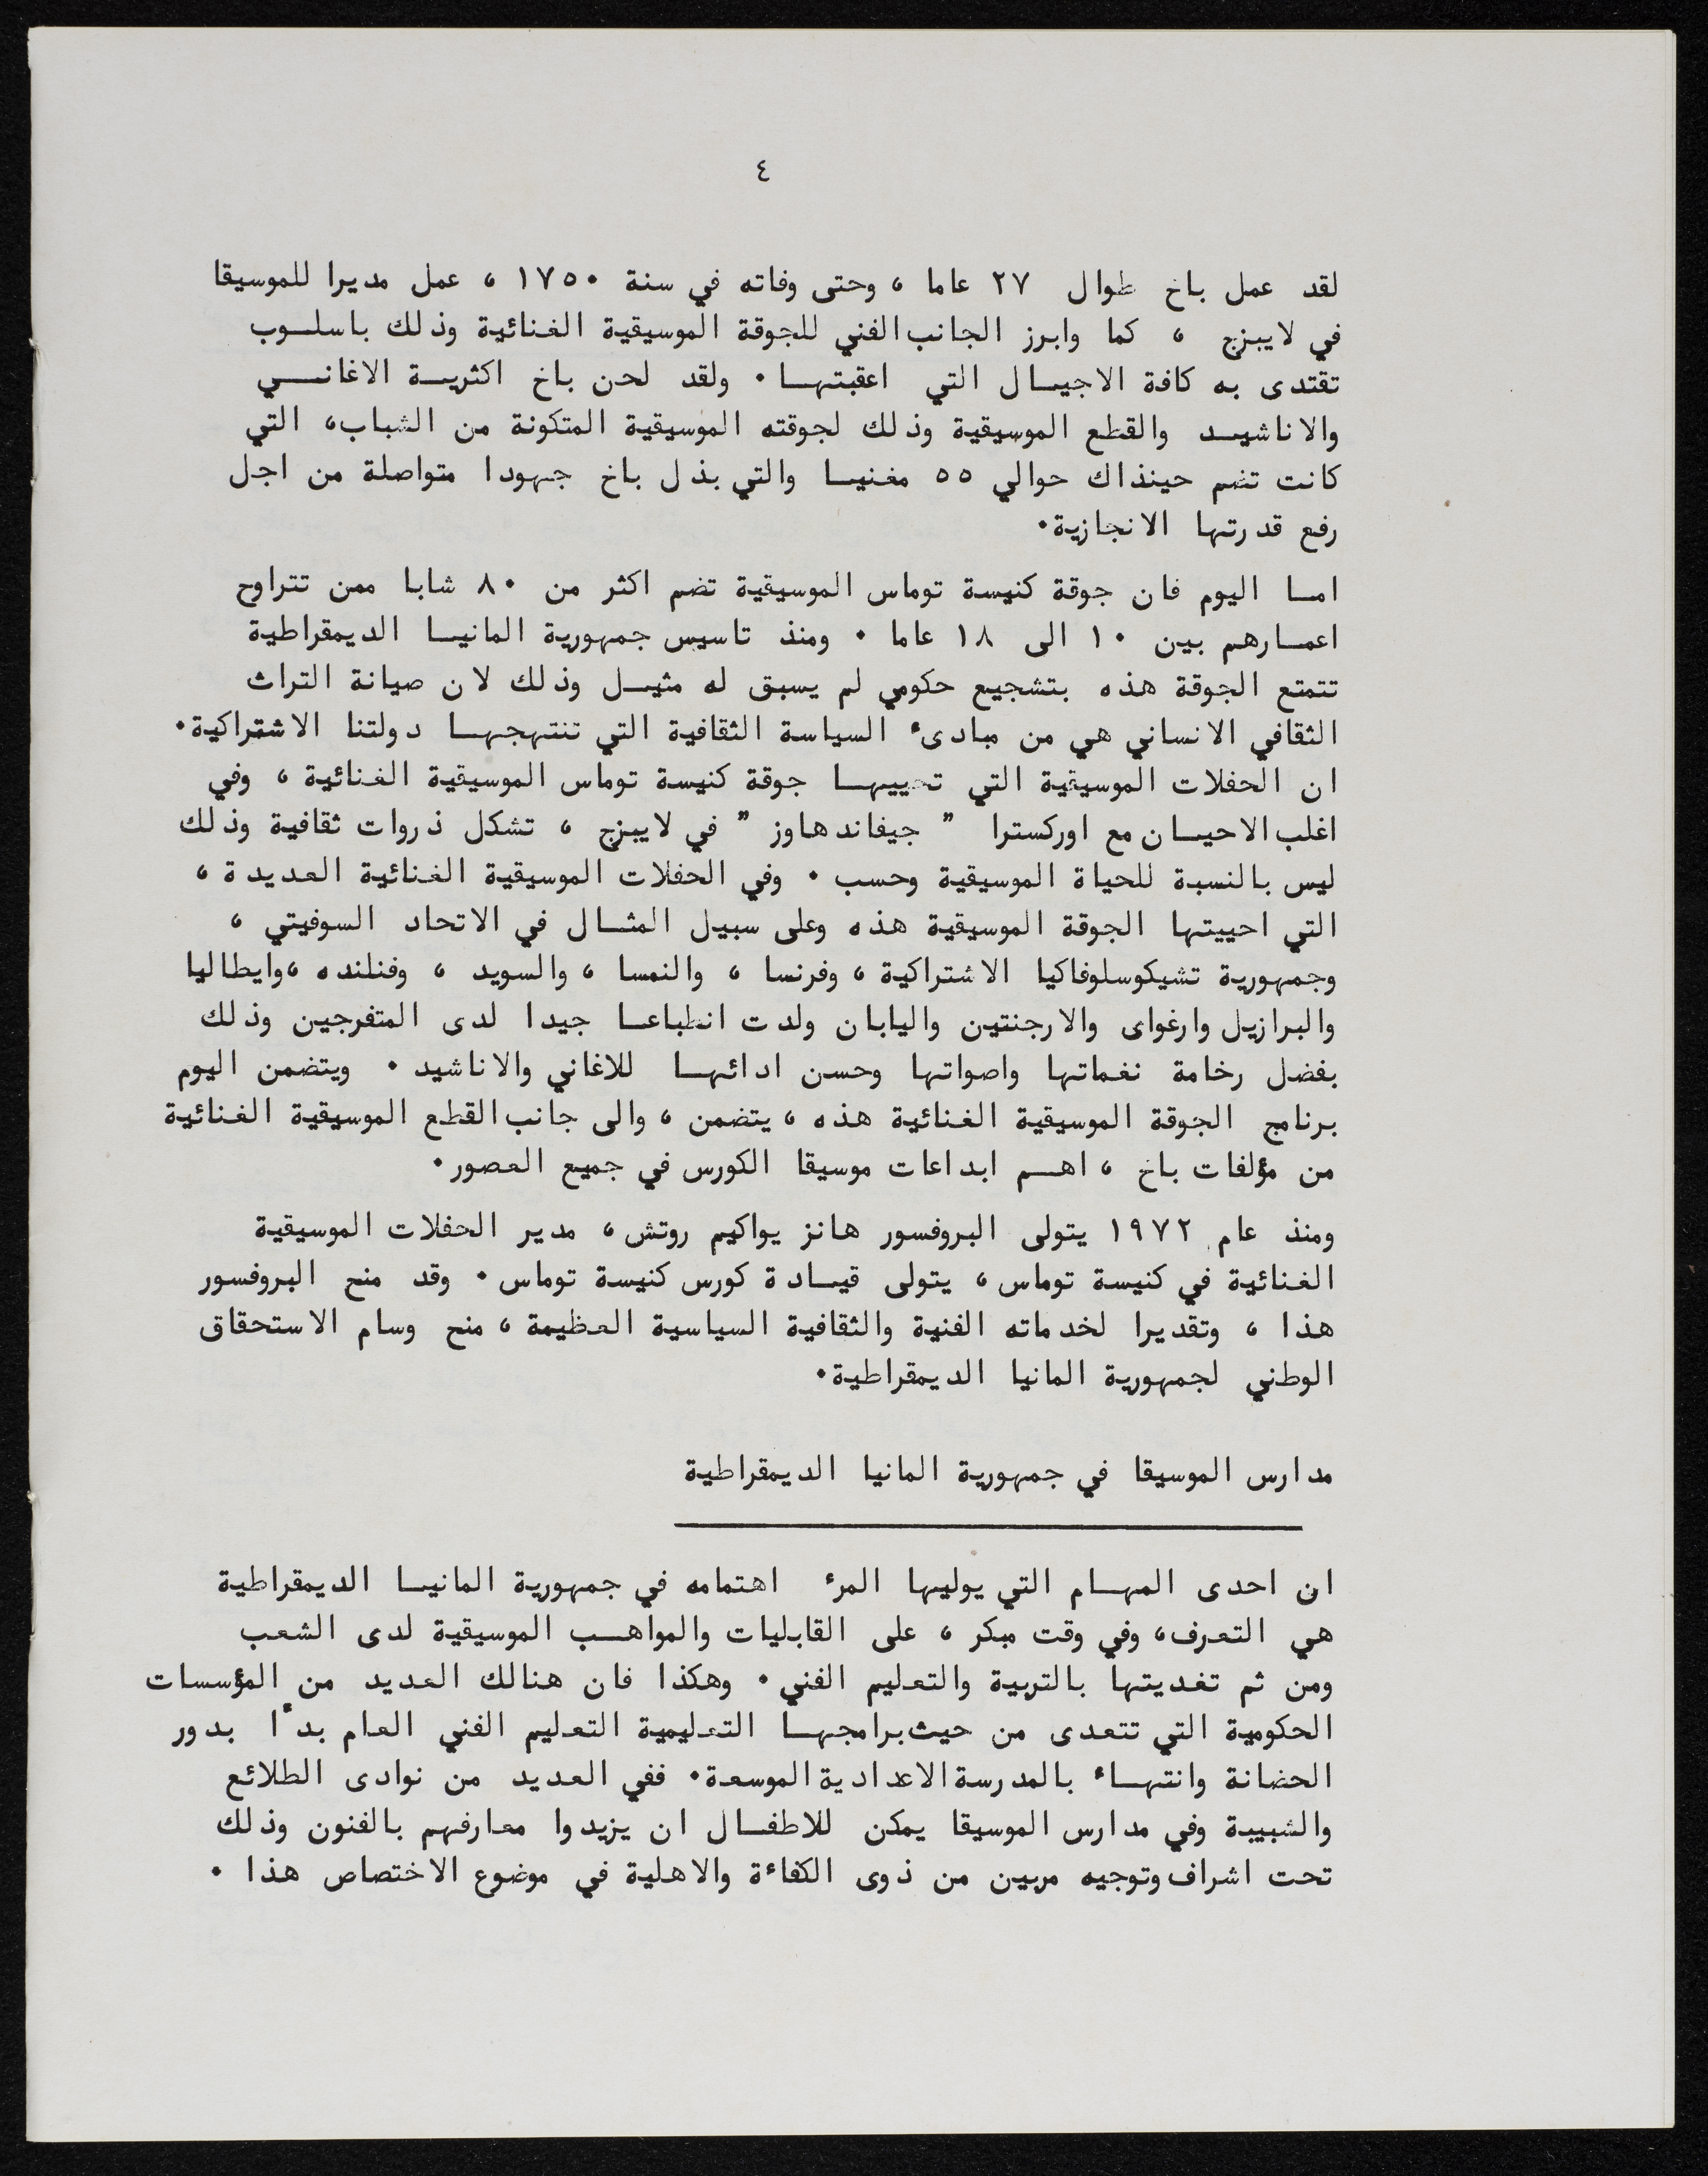 ٤
لقد عمل باخ طوال ٢٧ عاما ، وحتى وفاته في سنة ١٧٥٠ ، عمل مديرا للموسيقا
في لايبزج ، كما وابرز الجانب الفني للجوقة الموسيقية الغنائية وذلك باسلوب
تقتدى به كافة الاجيال التي اعقبتها . ولقد لحن باخ اكثرية الاغاني
والاناشيد والقطع الموسيقية وذلك لجوقته الموسيقية المتكونة من الشباب، التي
كانت تضم حينذاك حوالي ٥٥ مغنيا والتي بذل باخ جهودا متواصلة من اجل
رفع قدرتها الانجازية.
اما اليوم فان جوقة كنيسة توماس الموسيقية تضم اكثر من ٨٠ شابا ممن تتراوح
اعمارهم بين ١٠ الى ١٨ عاما . ومنذ تاسيس جمهورية المانيا الديمقراطية
تتمتع الجوقة هذه بتشجيع حكومي لم يسبق له مثيل وذلك لان صيانة التراث
الثقافي الانساني هي من مبادىء السياسة الثقافية التي تنتهجها دولتنا الاشتراكية.
ان الحفلات الموسيقية التي تحييها جوقة كنيسة توماس الموسيقية الغنائية ، وفي
اغلب الاحيان مع اوركسترا " جيفاندهاوز " في لايبزج ، تشكل ذروات ثقافية وذلك
ليس بالنسبة للحياة الموسيقية وحسب . وفي الحفلات الموسيقية الغنائية العديدة ،
التي احييتها الجوقة الموسيقية هذه وعلى سبيل المثال في الاتحاد السوفيتي ،
وجمهورية تشيكوسلوفاكيا الاشتراكية ، وفرنسا ، والنمسا ، والسويد ، وفنلنده ،وايطاليا
والبرازيل وارغواى والارجنتين واليابان ولدت انطباعا جيدا لدى المتفرجين وذلك
بفضل رخامة نغماتها واصواتها وحسن ادائها للاغاني والاناشيد . ويتضمن اليوم
برنامج الجوقة الموسيقية الغنائية هذه ، يتضمن ، والى جانب القطع الموسيقية الغنائية
من مؤلفات باخ ، اهم ابداعات موسيقا الكورس في جميع العصور.
ومنذ عام ١٩٧٢ يتولى البروفسور هانز يواكيم روتش ، مدير الحفلات الموسيقية
الغنائية في كنيسة توماس ، يتولى قيادة كورس كنيسة توماس . وقد منح البروفسور
هذا ، وتقديرا لخدماته الفنية والثقافية السياسية العظيمة ، منح وسام الاستحقاق
الوطني لجمهورية المانيا الديمقراطية.
مدارس الموسيقا في جمهورية المانيا الديمقراطية
ان احدى المهام التي يوليها المرء اهتمامه في جمهورية المانيا الديمقراطية
هي التعرف، وفي وقت مبكر ، على القابليات والمواهب الموسيقية لدى الشعب
ومن ثم تغديتها بالتربية والتعليم الفني . وهكذا فان هنالك العديد من المؤسسات
الحكومية التي تتعدى من حيث برامجها التعليمية التعليم الفني العام بدءًا بدور
الحضانة وانتهاء بالمدرسة الاعدادية الموسعة. ففي العديد من نوادى الطلائع
والشبيبة وفي مدارس الموسيقا يمكن للاطفال ان يزيدوا معارفهم بالفنون وذلك
تحت اشراف وتوجيه مربين من ذوى الكفاءة والاهلية في موضوع الاختصاص هذا .